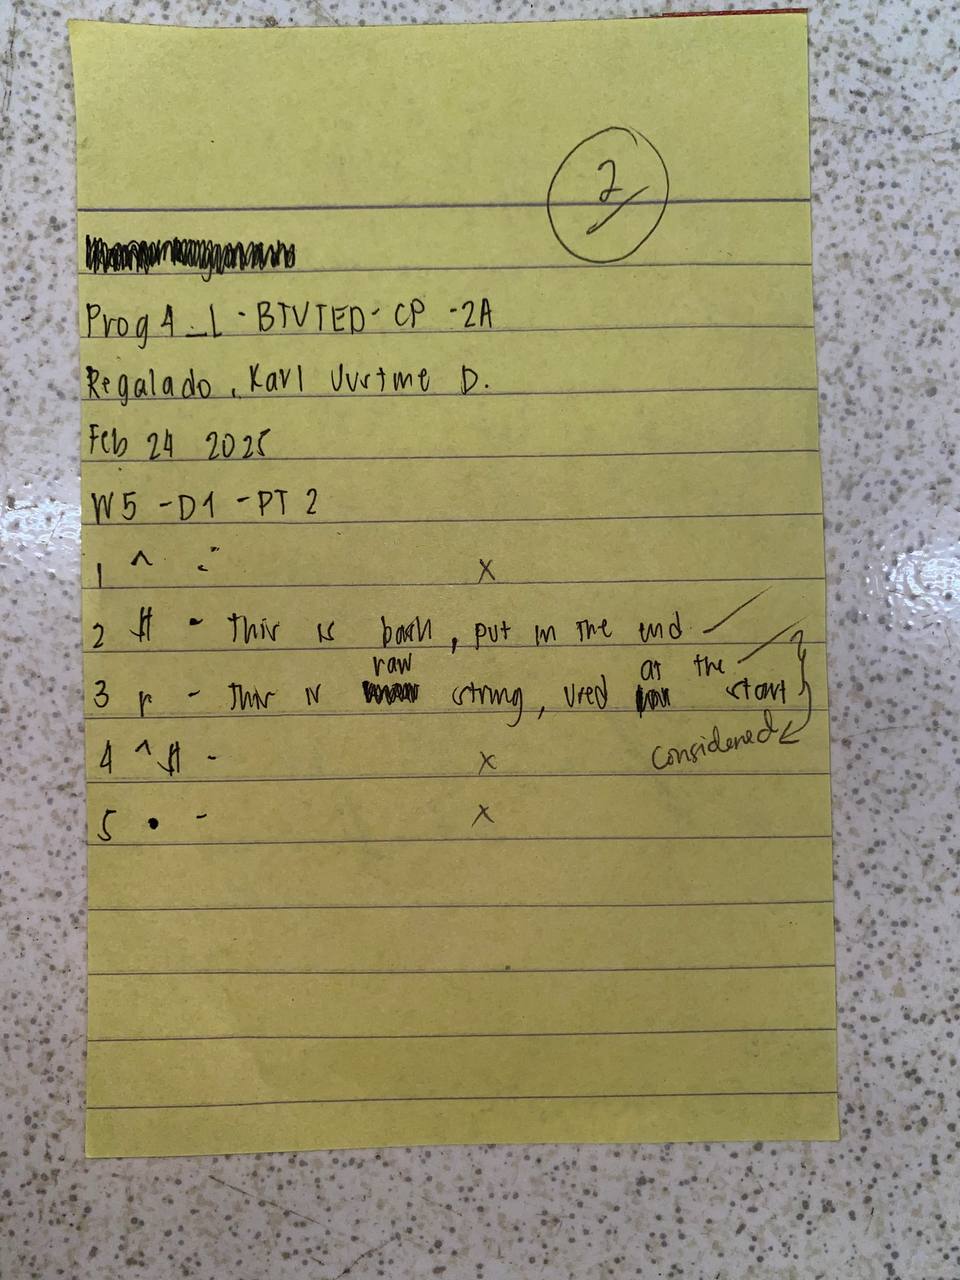 2
Prog 4_L - BTVTED - CP - 2A
Regalado, Karl D.
Feb 24 2025
W5 - D1 - PT 2
1 ^ - x
2 $ - This is bash, put in the end
3 r - This is raw string, used at the start
considered
4 ^$ - x
5 • - x